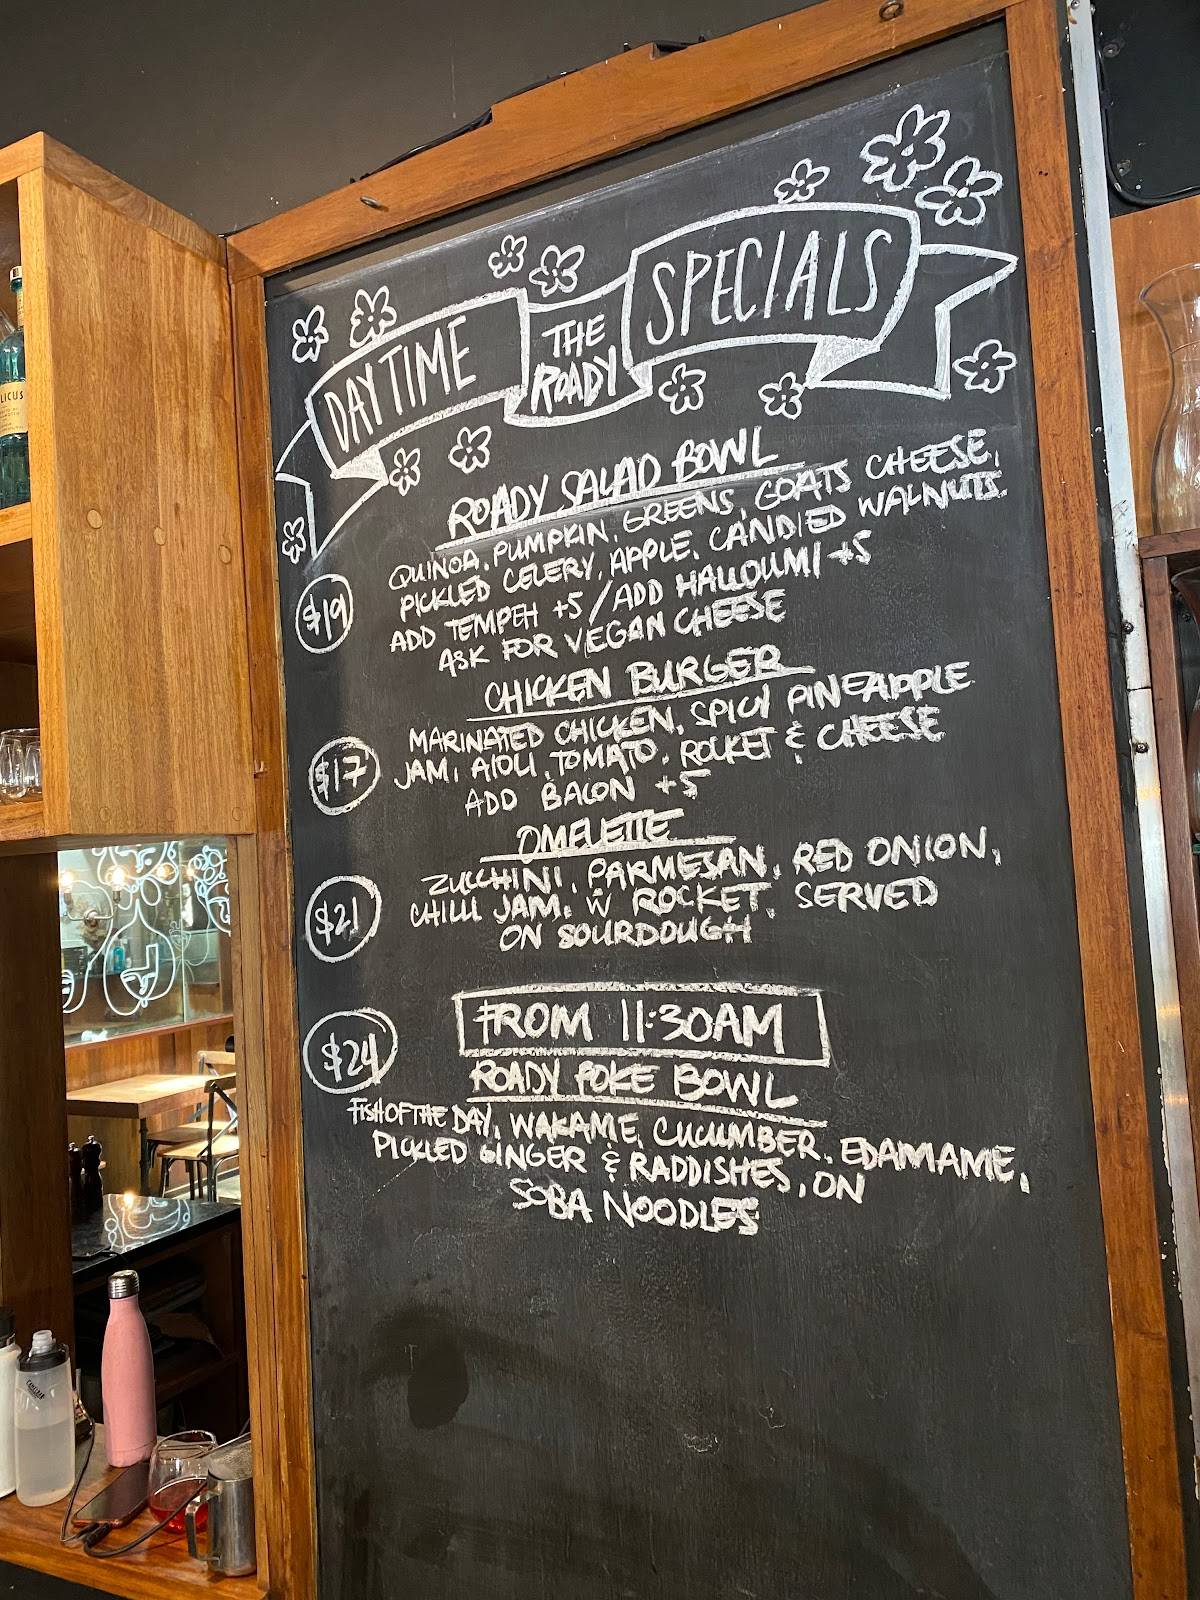 DAYTIME THE ROADY SPECIALS
ROADY SALAD BOWL
QUINOA, PUMPKIN, GREENS, GOATS CHEESE,
PICKLED CELERY, APPLE, CANDIED WALNUTS.
ADD TEMPEH +5 / ADD HALLOUMI +5
ASK FOR VEGAN CHEESE
$19
CHICKEN BURGER
MARINATED CHICKEN, SPICY PINEAPPLE
JAM, AIOLI, TOMATO, ROCKET & CHEESE
ADD BACON +5
$17
OMELETTE
ZUCCHINI, PARMESAN, RED ONION,
CHILLI JAM, W ROCKET, SERVED
ON SOURDOUGH
$21
FROM 11:30AM
$24
ROADY POKE BOWL
FISH OF THE DAY, WAKAME, CUCUMBER, EDAMAME,
PICKLED GINGER & RADDISHES, ON
SOBA NOODLES
LICUS